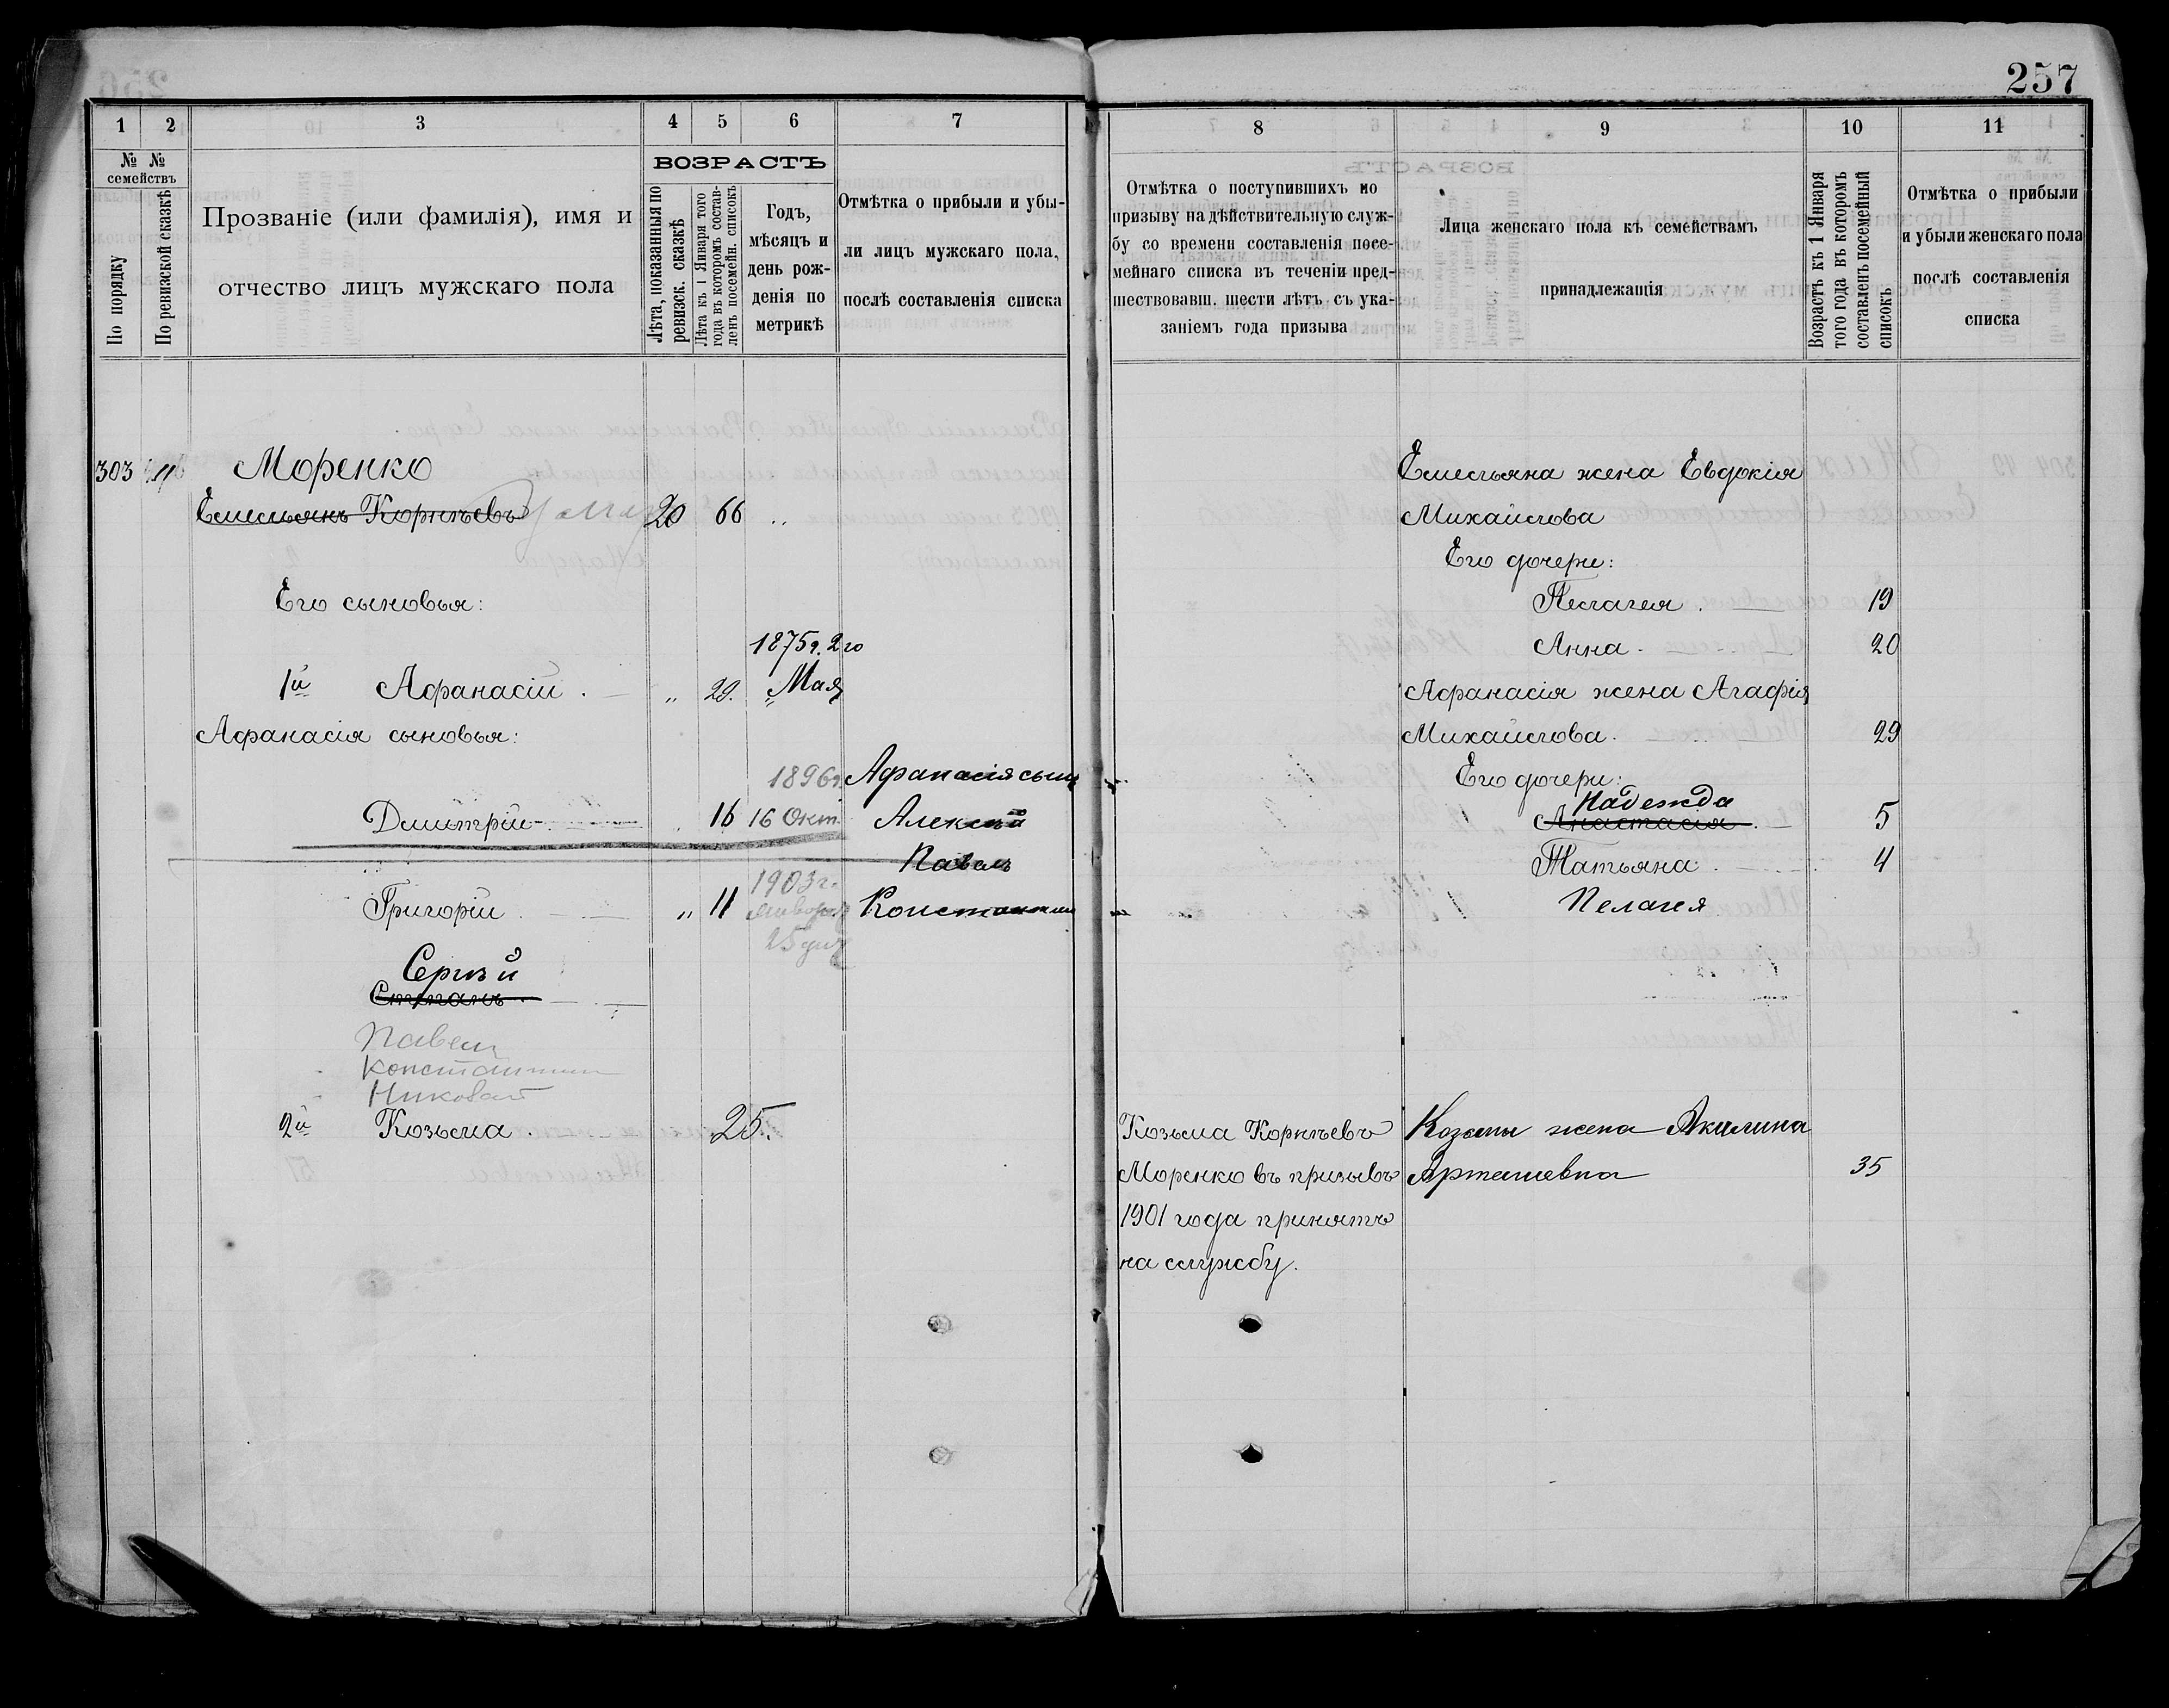 257
1
2
3
4
5
6
7
№ №
семействъ
По порядку
По ревизской сказкѣ
Прозваніе (или фамилія), имя и
отчество лицъ мужскаго пола
ВОЗРАСТЪ
Лѣта, показанныя по
ревизск. сказкѣ
Лѣта къ 1 Января того
года въ которомъ состав-
ленъ посемейн. списокъ
Годъ,
мѣсяцъ и
день рож-
денія по
метрикѣ
Отмѣтка о прибыли и убы-
ли лицъ мужскаго пола,
послѣ составленія списка
303
Моренко
Емельянъ Корнѣевъ 20 66 „
Его сыновья:
1875г. 2го
1й Афанасій . „ 29. Мая
Афанасія сыновья:
1896г. Афанасія сынъ
Дмитрій 16 16 Окт. Алексѣй
Павелъ
1903г.
Григорій . „ 11 января Константинъ
25 дня
Сергѣй
Степанъ .
Павелъ
Константинъ
Николай
2й Козьма . 25.
8
9
10
11
Отмѣтка о поступившихъ по
призыву на дѣйствительную служ-
бу со времени составленія посе-
мейнаго списка въ теченіи пред-
шествовавш. шести лѣтъ съ ука-
заніемъ года призыва
Лица женскаго пола къ семействамъ
принадлежащія
Возрастъ къ 1 Января
того года въ которомъ
составленъ посемейный
списокъ
Отмѣтка о прибыли
и убыли женскаго пола
послѣ составленія
списка
Емельяна жена Евдокія
Михайлова
Его дочери:
Пелагея . 19
Анна . 20
Афанасія жена Агафія
Михайлова. 29
Его дочери:
Надежда
Анастасія . 5
Татьяна . 4
Пелагея
Козьма Корнѣевъ
Моренко въ призывъ
1901 года принятъ
на службу.
Козьмы жена Акилина
Артемьевна 35